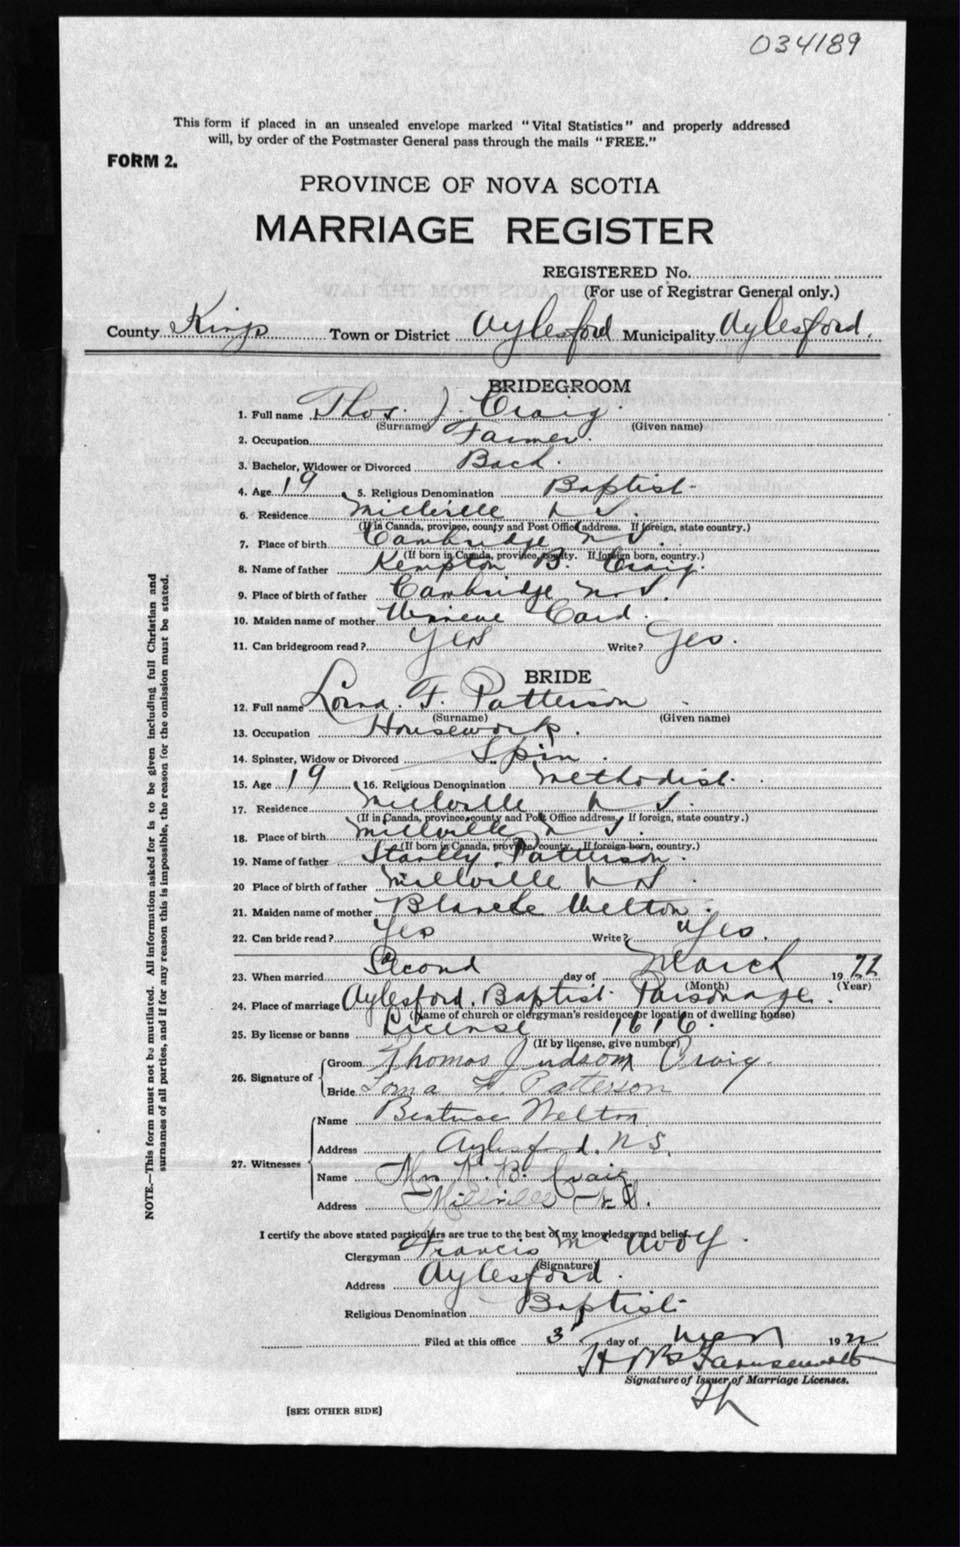 034189
This form if placed in an unsealed envelope marked "Vital Statistics" and properly addressed
will, by order of the Postmaster General pass through the mails "FREE."
FORM 2.
PROVINCE OF NOVA SCOTIA
MARRIAGE REGISTER
REGISTERED No.
(For use of Registrar General only.)
County Kings Town or District Aylesford Municipality Aylesford.
BRIDEGROOM
1. Full name Thos. J. Craig.
(Surname) (Given name)
2. Occupation Farmer.
3. Bachelor, Widower or Divorced Bach.
4. Age 19 5. Religious Denomination Baptist
6. Residence Millville N S.
(If in Canada, province, county and Post Office address. If foreign, state country.)
7. Place of birth Cambridge N S.
(If born in Canada, province, county. If foreign born, country.)
8. Name of father Kempton B. Craig.
9. Place of birth of father Cambridge N.S.
10. Maiden name of mother Card.
11. Can bridegroom read? Yes Write? Yes.
BRIDE
12. Full name Lorna. F. Patterson
(Surname) (Given name)
13. Occupation Housework.
14. Spinster, Widow or Divorced Spin
15. Age 19 16. Religious Denomination Methodist.
17. Residence Millville N S.
(If in Canada, province, county and Post Office address. If foreign, state country.)
18. Place of birth Millville N S.
(If born in Canada, province, county. If foreign born, country.)
19. Name of father Patterson.
20 Place of birth of father Millville N S
21. Maiden name of mother Blanche Welton.
22. Can bride read? Yes Write? Yes.
23. When married Second day of March 1922
(Month) (Year)
24. Place of marriage Aylesford. Baptist Parsonage.
(Name of church or clergyman's residence or location of dwelling house)
25. By license or banns License 1616.
(If by license, give number)
26. Signature of Groom Thomas Judson Craig.
Bride Lorna F. Patterson
27. Witnesses Name Beatrice Welton
Address Aylesford. N.S.
Name Mrs K. B. Craig
Address Millville N.S.
I certify the above stated particulars are true to the best of my knowledge and belief.
Clergyman Francis
(Signature)
Address Aylesford.
Religious Denomination Baptist
Filed at this office 3 day of 1922
Signature of Issuer of Marriage Licenses.
[SEE OTHER SIDE]
NOTE.—This form must not be mutilated. All information asked for is to be given including full Christian and
surnames of all parties, and if for any reason this is impossible, the reason for the omission must be stated.